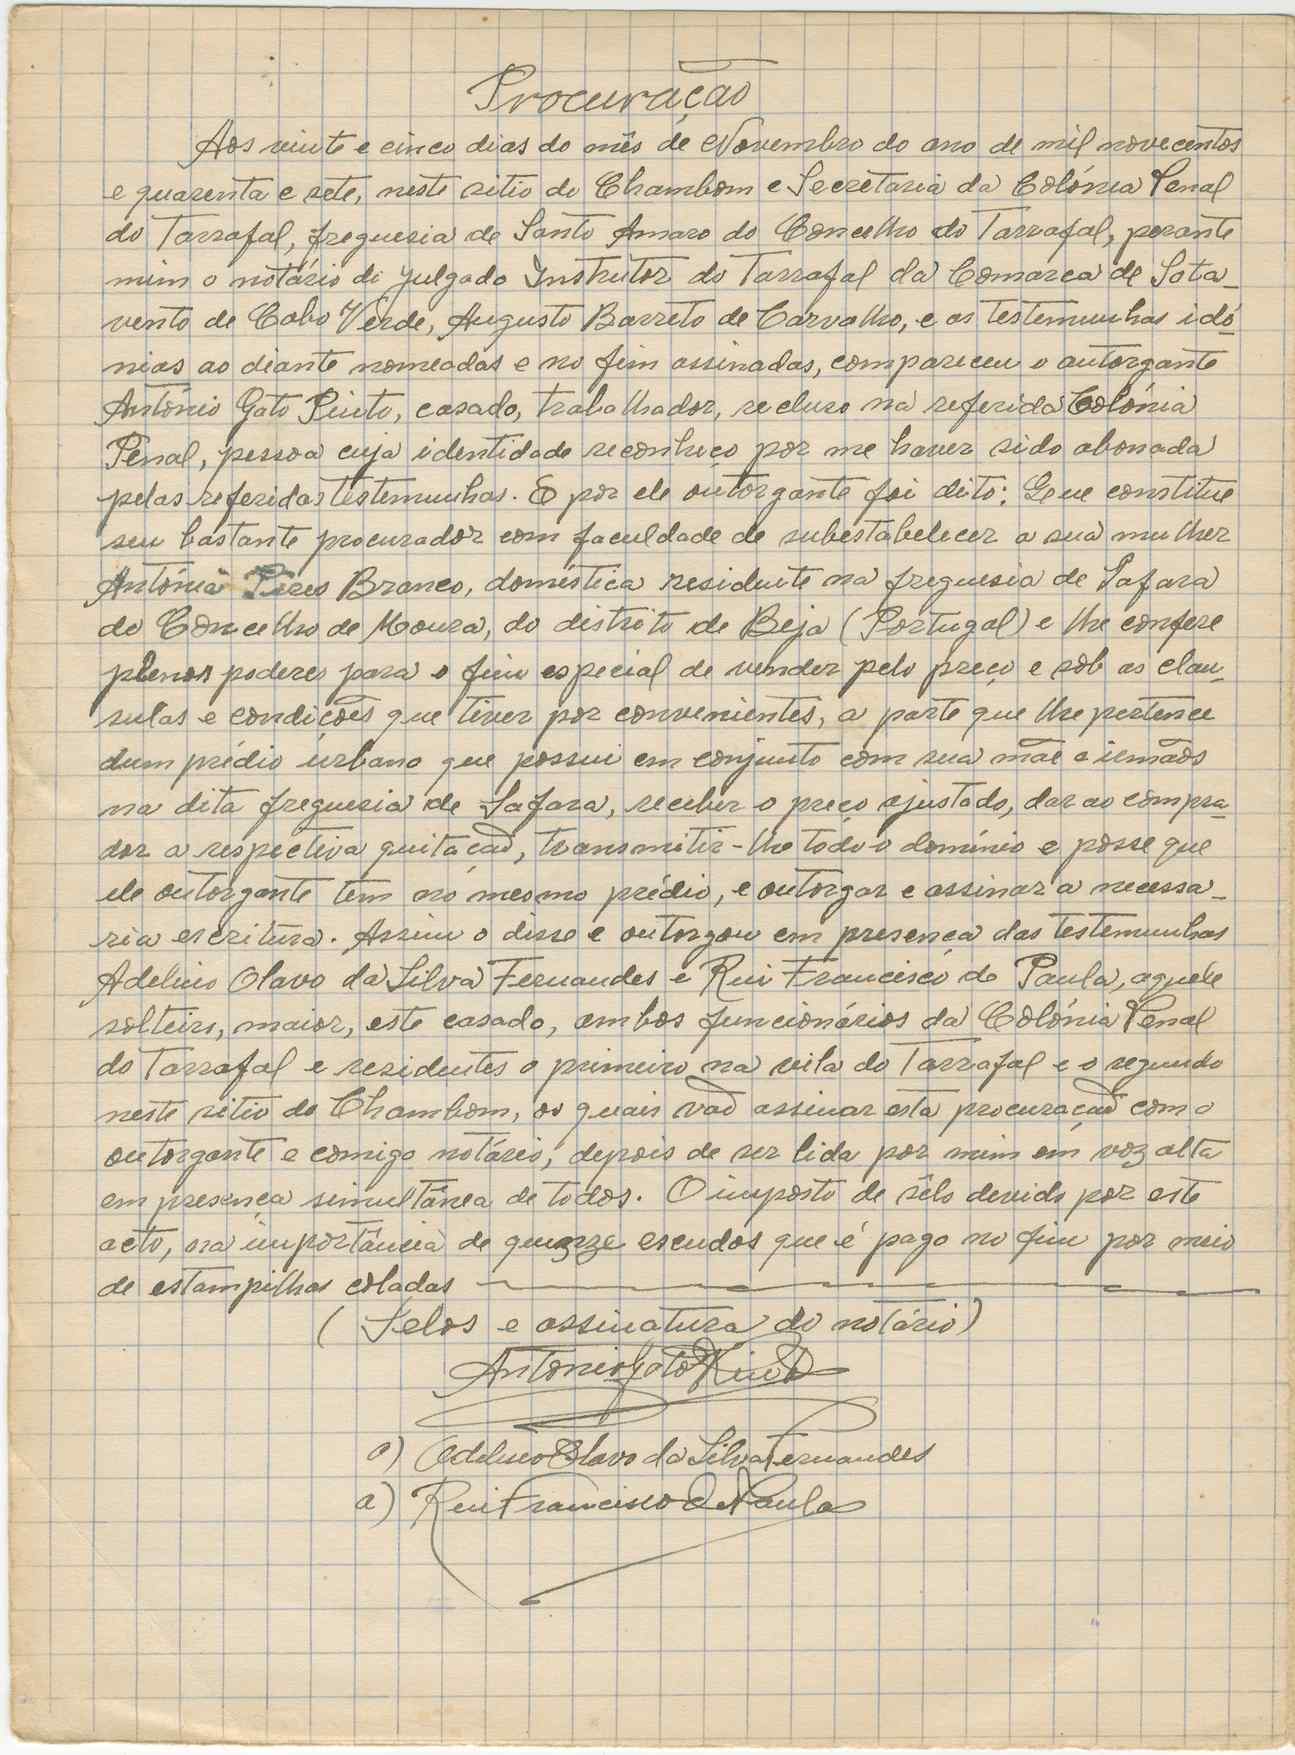 Procuração
Aos vinte e cinco dias do mês de Novembro do ano de mil novecentos
e quarenta e sete, neste sitio de Chambom e Secretaria da Colónia Penal
do Tarrafal, freguesia de Santo Amaro do Concelho do Tarrafal, perante
mim o notário do julgado Instrutor do Tarrafal da Comarca de Sota-
vento de Cabo Verde, Augusto Barreto de Carvalho, e as testemunhas idó-
nias ao diante nomeadas e no fim assinadas, compareceu o outorgante
António Gato Pinto, casado, trabalhador, recluso na referida Colónia
Penal, pessoa cuja identidade reconheço por me haver sido abonada
pelas referidas testemunhas. E por ele outorgante foi dito: Que constitue
seu bastante procurador com faculdade de subestabelecer a sua mulher
Antónia Pires Branco, doméstica residente na freguesia de Safara
do Concelho de Moura, do distrito de Beja (Portugal) e lhe confere
plenos poderes para o fim especial de vender pelo preço e sob as clau-
sulas e condições que tiver por convenientes, a parte que lhe pertence
dum prédio urbano que possui em conjunto com sua mãe e irmãos
na dita freguesia de Safara, receber o preço ajustado, dar ao compra-
dor a respectiva quitação, transmitir-lhe todo o domínio e posse que
ele outorgante tem no mesmo prédio, e outorgar e assinar a necessa-
ria escritura. Assim o disse e outorgou em presença das testemunhas
Adelino Olavo da Silva Fernandes e Rui Francisco de Paula, aquele
solteiro, maior, este casado, ambos funcionários da Colónia Penal
do Tarrafal e residentes o primeiro na vila do Tarrafal e o segundo
neste sitio de Chambom, os quais vão assinar esta procuração com o
outorgante e comigo notário, depois de ser lida por mim em voz alta
em presença simultânea de todos. O imposto de sêlo devido por este
acto, na importância de quinze escudos que é pago no fim por meio
de estampilhas coladas
(Selos e assinatura do notário)
Antonio Gato Pinto
a) Adelino Olavo da Silva Fernandes
a) Rui Francisco de Paula